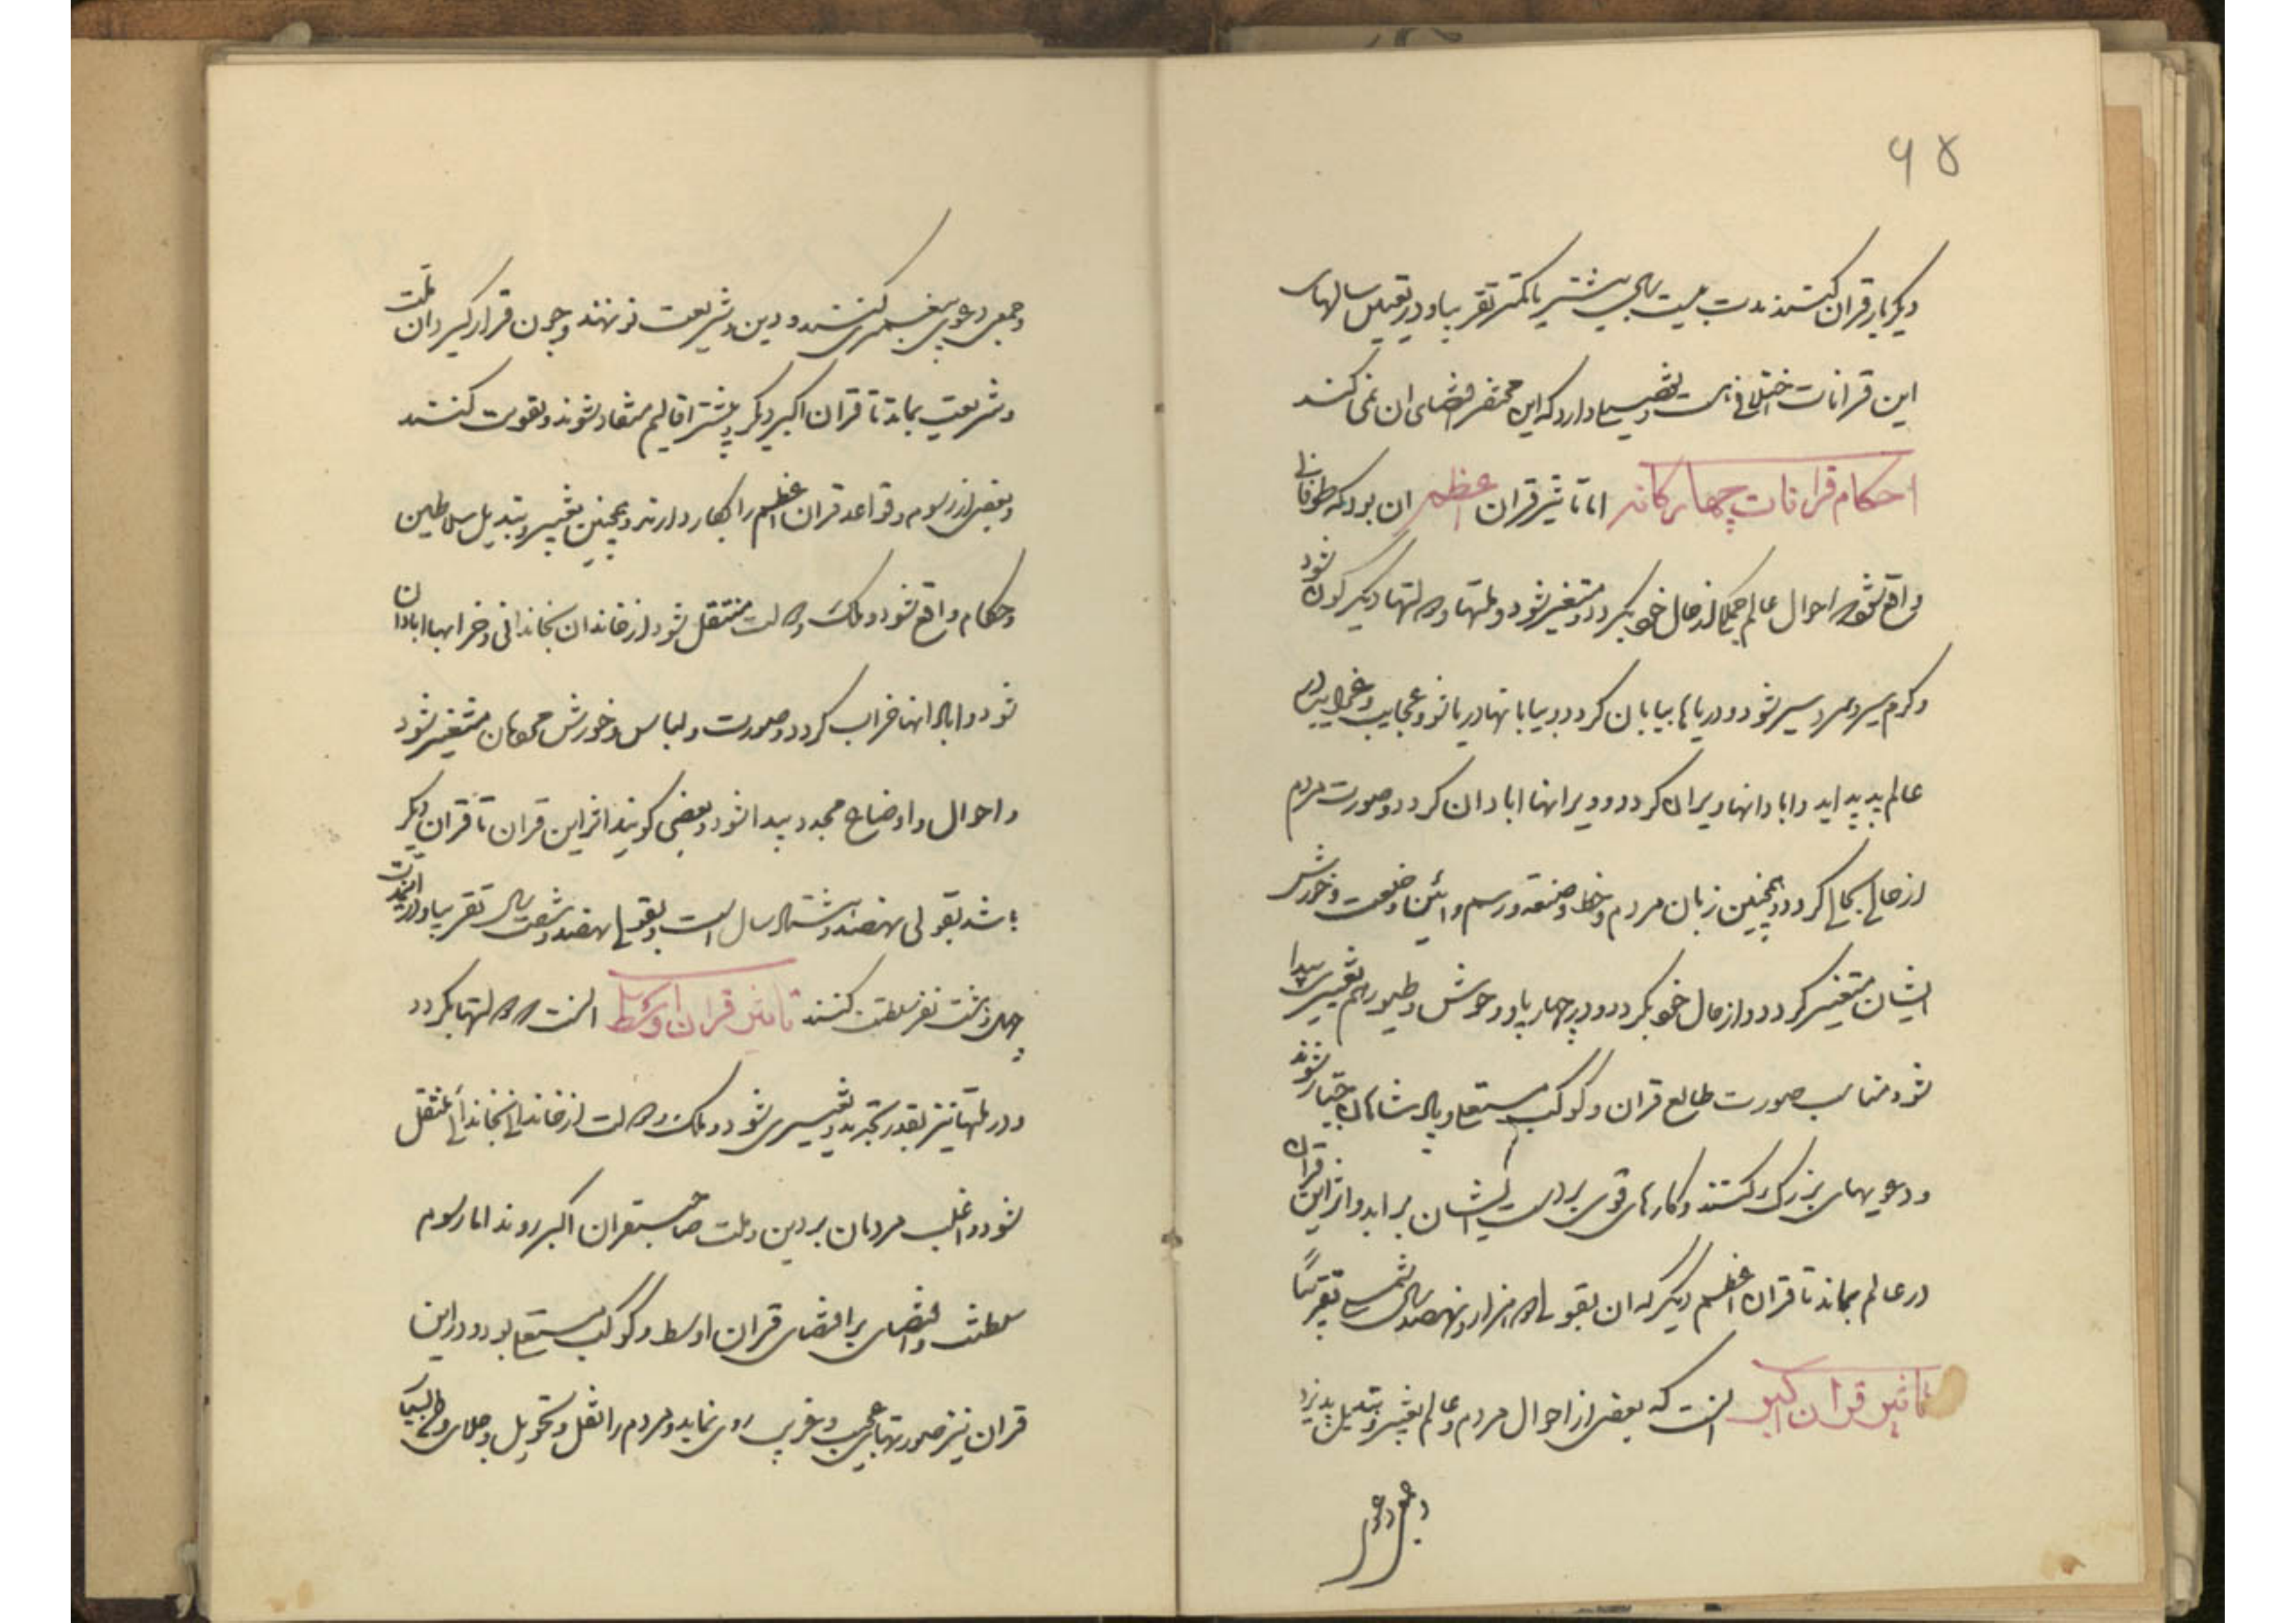 ۶۵
دیگر بار قران کنند بمدت بیست سال بیشتر یا کمتر تقریبا و در تعیین سالهای
این قرانات اختلافی هست و تفصیلی دارد که این مختصر اقتضای ان نمی کند
احکام قرانات چهارگانه اما تاثیر قران اعظم ان بود که طوفانی
واقع شود و احوال عالم جمله از حال خود بگردد و متغیر شود و ملتها و دولتها دیگرگون شود
و گرم سیر و سرد سیر شود و دریاها بیابان گردد و بیابانها دریا شود و عجایب و غرایب در
عالم پدید اید و ابادانها ویران گردد و ویرانها ابادان گردد و صورت مردم
از حالی بحالی گردد و همچنین زبان مردم و خط و صنعت و رسم و ائین و خلعت و خورش
ایشان متغیر گردد و از حال خود بگردد و در چهارپا و وحوش و طیور هم تغییر پیدا
شود مناسب صورت طالع قران و کوکب مستعلی و پادشاهان جبار شوند
و دعویهای بزرگ کنند و کارهای قوی بر دست ایشان براید و اثر این قران
در عالم بماند تا قران اعظم دیگر که ان بقولی دو هزار و نهصد سال شمسی تقریبًا
تاثیر قران اکبر انست که بعضی از احوال مردم و عالم تغییر و تبدیل پذیرد
و جمعی دعوی
و جمعی دعوی پیغمبری کنند و دین و شریعت نو نهند و چون قرار گیرد ان ملت
و شریعت بماند تا قران اکبر دیگر و بیشتر اقالیم منقاد شوند و تقویت کنند
و بعضی از رسوم و قواعد قران اعظم را بکار دارند و همچنین تغییر و تبدیل سلاطین
و حکام واقع شود و ملک و دولت منتقل شود از خاندان بخاندانی و خرابها ابادان
شود و ابادانها خراب گردد و صورت و لباس و خورش مردمان متغیر شود
و احوال و اوضاع مجدد پیدا شود و بعضی گویند اثر این قران تا قران دیگر
باشد بقولی نهصد و هشتاد سال است و بقولی نهصد و شصت سال تقریبا و در این مدت
چهل و هشت نفر سلطنت کنند تاثیر قران اوسط انست که دولتها بگردد
و در ملتها نیز بقدر تجدید و تغییری شود و ملک و دولت از خاندانی بخاندانی منتقل
شود و اغلب مردمان بر دین و ملت صاحبقران اکبر روند اما رسوم
سلطنت و اقتضای بر اقتضای قران اوسط و کوکب مستعلی بود و در این
قران نیز صورتهای عجیب و غریب روی نماید و مردم را نقل و تحویل و جلای وطن بسیار